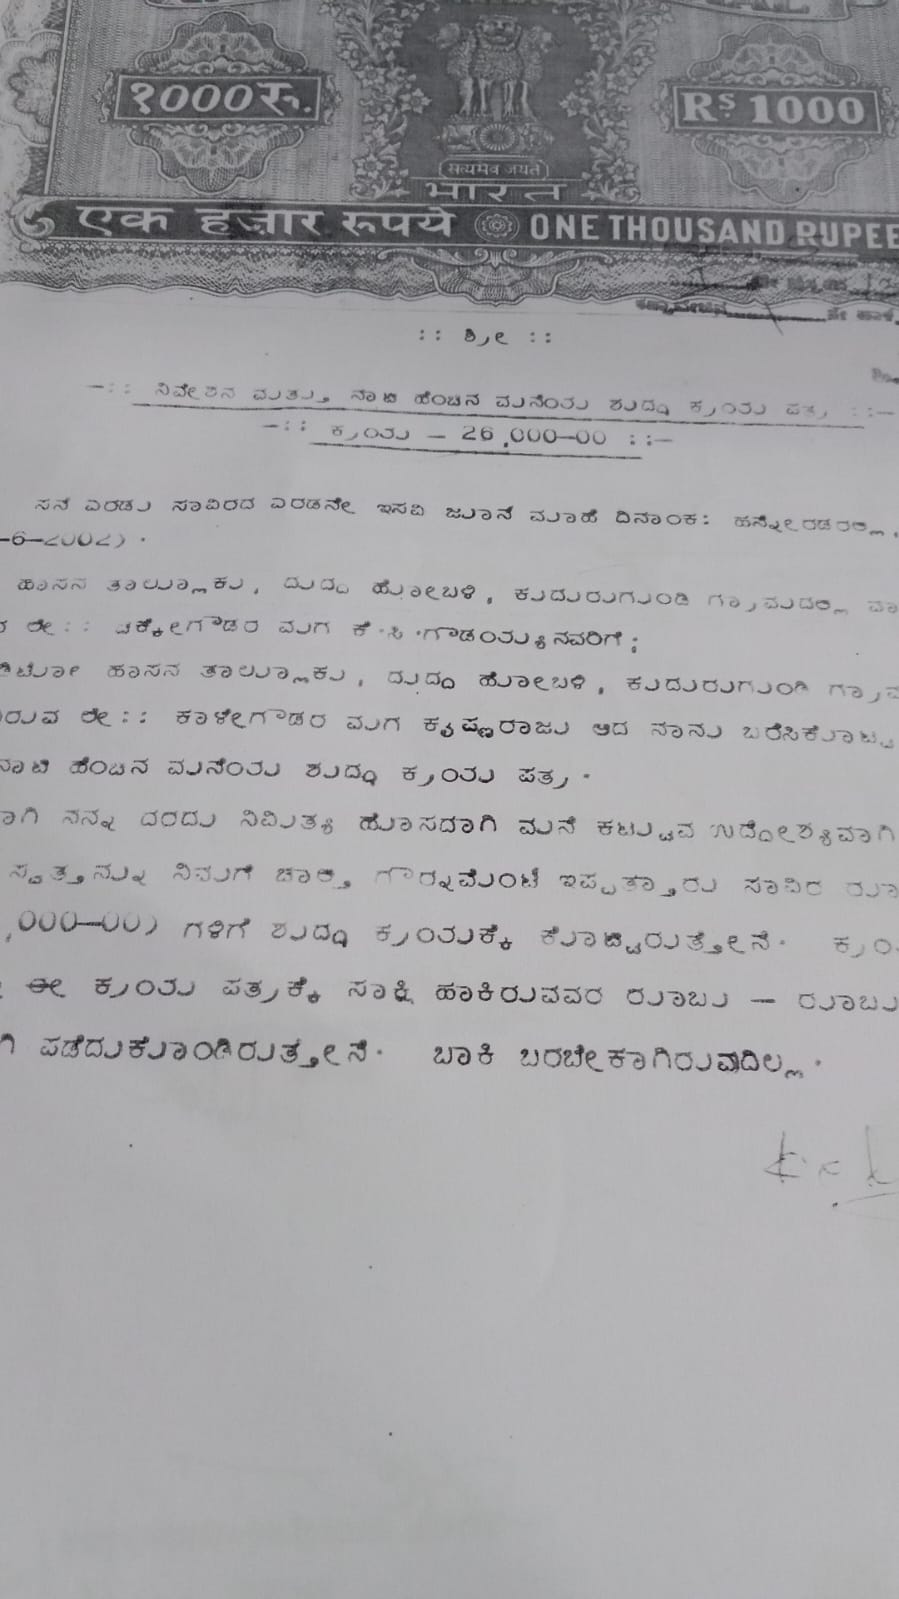 १000रु. RS 1000
सत्यमेव जयते
भारत
एक हज़ार रुपये ONE THOUSAND RUPEE
:: ಶ್ರೀ ::
-:: ನಿವೇಶನ ಮತ್ತು ನಾಟಿ ಹೆಂಚಿನ ಮನೆಯ ಶುದ್ಧ ಕ್ರಯ ಪತ್ರ ::-
-:: ಕ್ರಯ - 26,000-00 ::-
ಸನೆ ಎರಡು ಸಾವಿರದ ಎರಡನೇ ಇಸವಿ ಜೂನೆ ಮಾಹೆ ದಿನಾಂಕ: ಹನ್ನೆರಡರಲ್ಲಿ,
-6-2002).
ಹಾಸನ ತಾಲ್ಲೂಕು, ದುದ್ದ ಹೋಬಳಿ, ಕುದುರುಗುಂಡಿ ಗ್ರಾಮದಲ್ಲಿ
ಲೇ:: ಚಿಕ್ಕೇಗೌಡರ ಮಗ ಕೆ.ಸಿ.ಗೌಡಯ್ಯನವರಿಗೆ;
ಹಾಸನ ತಾಲ್ಲೂಕು, ದುದ್ದ ಹೋಬಳಿ, ಕುದುರುಗುಂಡಿ
ರುವ ಲೇ:: ಕಾಳೇಗೌಡರ ಮಗ ಕೃಷ್ಣರಾಜು ಆದ ನಾನು ಬರೆಸಿಕೊಟ್ಟ
ನಾಟಿ ಹೆಂಚಿನ ಮನೆಯ ಶುದ್ಧ ಕ್ರಯ ಪತ್ರ.
ಗಿ ನನ್ನ ದರದು ನಿಮಿತ್ಯ ಹೊಸದಾಗಿ ಮನೆ ಕಟ್ಟುವ ಉದ್ದೇಶ್ಯವಾಗಿ
ಸ್ವತ್ತನ್ನು ನಿಮಗೆ ಚಾಲ್ತಿ ಗೌರ್ನಮೆಂಟಿ ಇಪ್ಪತ್ತಾರು ಸಾವಿರ ರೂ
,000-00) ಗಳಿಗೆ ಶುದ್ಧ ಕ್ರಯಕ್ಕೆ ಕೊಟ್ಟಿರುತ್ತೇನೆ.
ಈ ಕ್ರಯ ಪತ್ರಕ್ಕೆ ಸಾಕ್ಷಿ ಹಾಕಿರುವವರ ರೂಬು - ರೂಬು
ಗಿ ಪಡೆದುಕೊಂಡಿರುತ್ತೇನೆ. ಬಾಕಿ ಬರಬೇಕಾಗಿರುವುದಿಲ್ಲ.